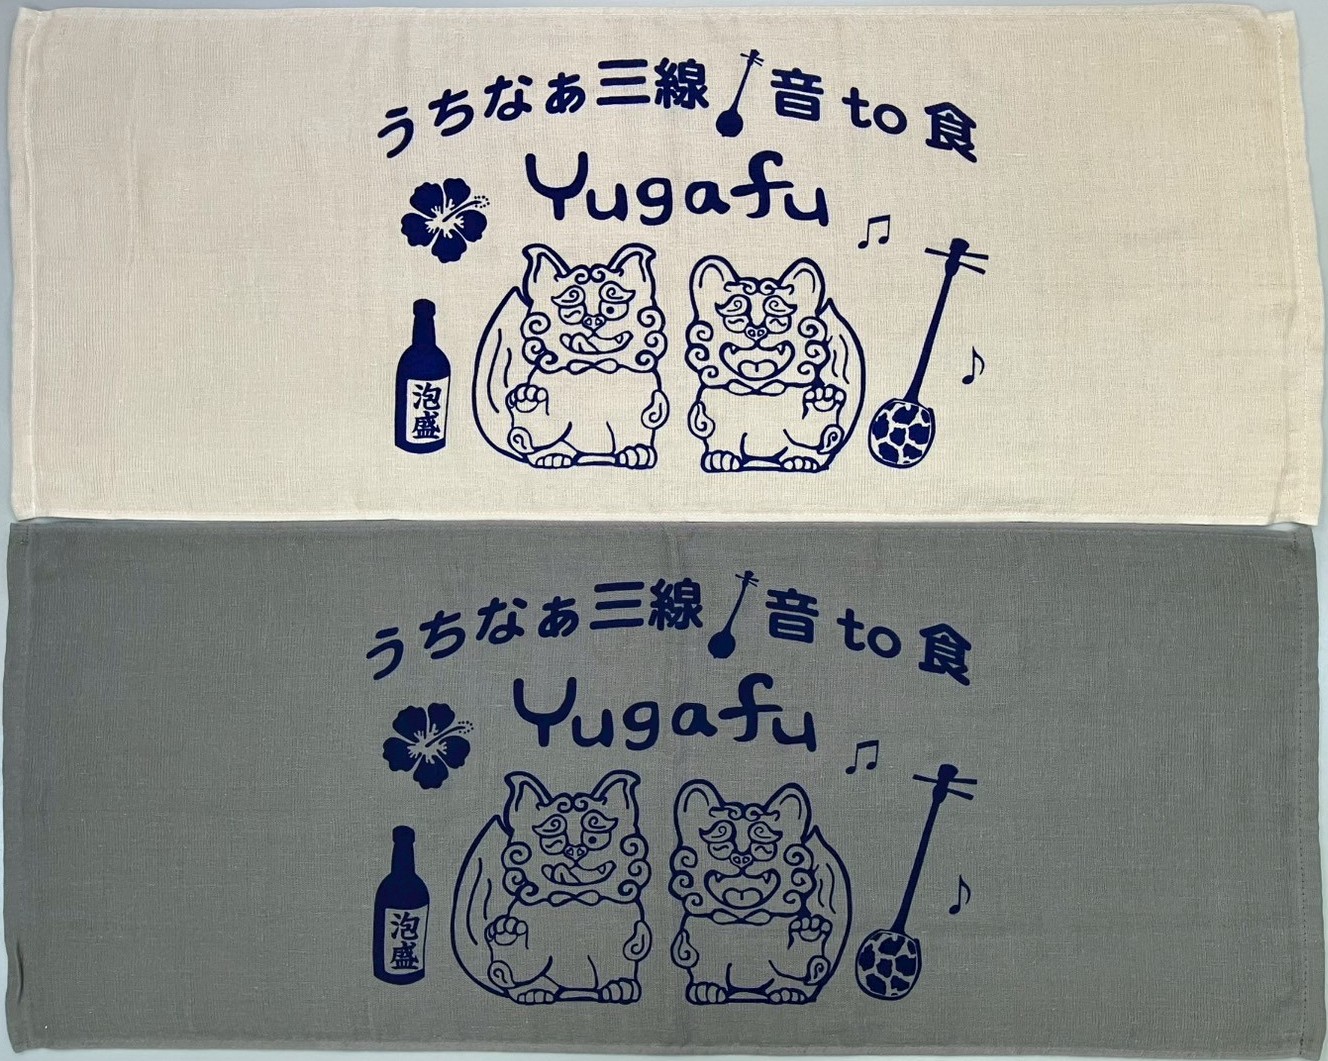 うちなぁ三線 音 to 食
Yugafu
泡盛
うちなぁ三線 音 to 食
Yugafu
泡盛